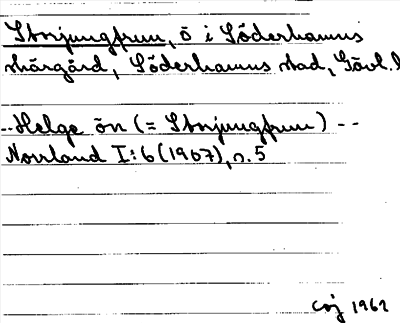 Storjungfrun, ö i Söderhamns
skärgård, Söderhamns stad, Gävl.l
--Helge ön (= Storjungfrun) --
Norrland I:6 (1967), s. 5
1962